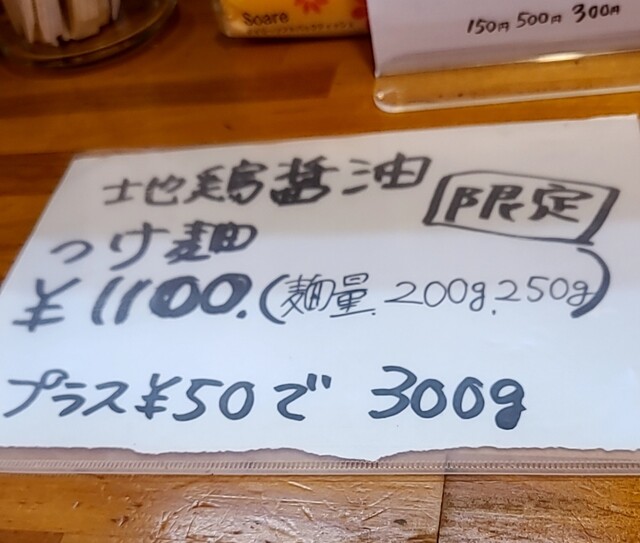 Soare
150円 500円 300円
地鶏醤油 限定
つけ麺
¥1100.(麺量. 200g.250g)
プラス¥50で 300g